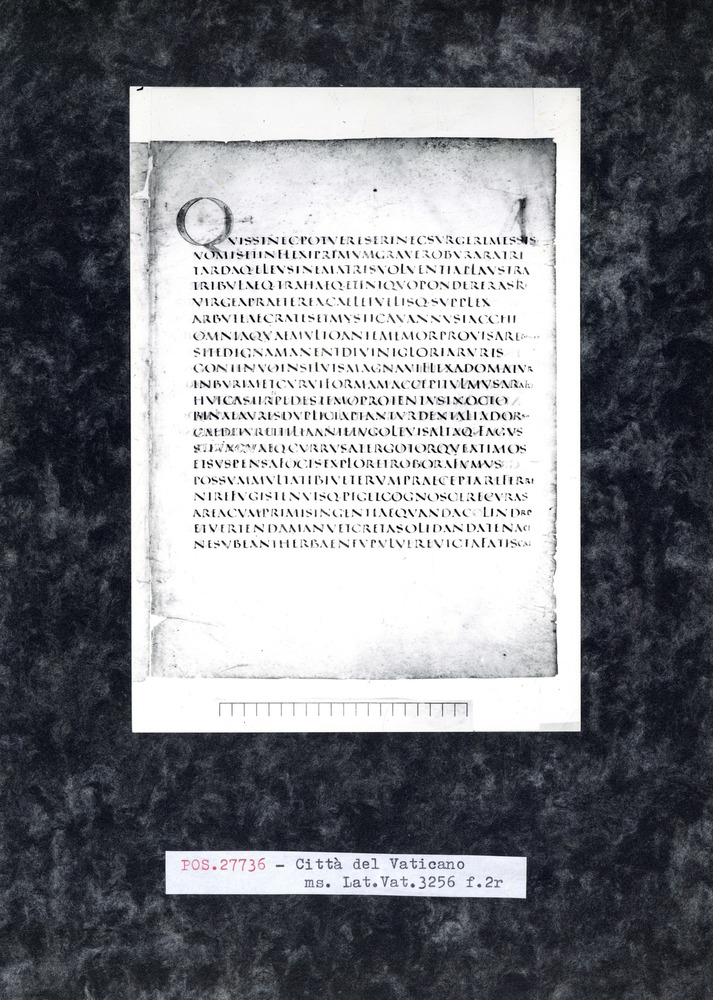 QVISSINECPOTVERESERINECSVRGEREMESSIS
VOMISETINFLEXIPRIMVMGRAVEROBVRARATRI
TARDAQ·ELEVSINAEMATRISVOLVENTIAPLAVSTRA
TRIBVLAEQ·TRAHAEQ·ETINIQVOPONDERERASRI
VIRGEAPRAETEREACAELEIVILISQ·SVPPLEX
ARBVTEAECRATESETMYSTICAVANNVSIACCHI
OMNIAQVAEMVLTOANTEMEMORPROVISAREPONES
SITEDIGNAMANENTDIVINIGLORIARVRIS
CONTINVOINSILVISMAGNAVIFLEXADOMATVR
INBVRIMETCVRVIFORMAMACCEPITVLMVSARATRI
HVICASTIRPEDESTEMOPROTENTVSINOCTO
BINAEAVRESDVPLICIAPTANTVRDENTALIADORSO
CAEDITVRETTILIAANTEIVGOLEVISALTAQ·FAGVS
STIVAQVAEQ·CVRRVSATERGOTORQVEATIMOS
ETSVSPENSAFOCISEXPLORETROBORAFVMVS
POSSVMMVLTATIBIVETERVMPRAECEPTAREFERRE
NIREFVGISTENVISQ·PIGETCOGNOSCERECVRAS
AREACVMPRIMISINGENTIAEQVANDACYLINDRO
ETVERTENDAMANVETCRETASOLIDANDATENACI
NESVBEANTHERBAENEVPVLVEREVICTAFATISCAT
POS.27736 – Città del Vaticano
ms. Lat.Vat.3256 f.2r